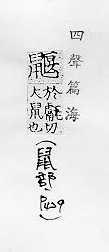 四聲篇海
鼴
於切
大鼠也
(鼠部) P49